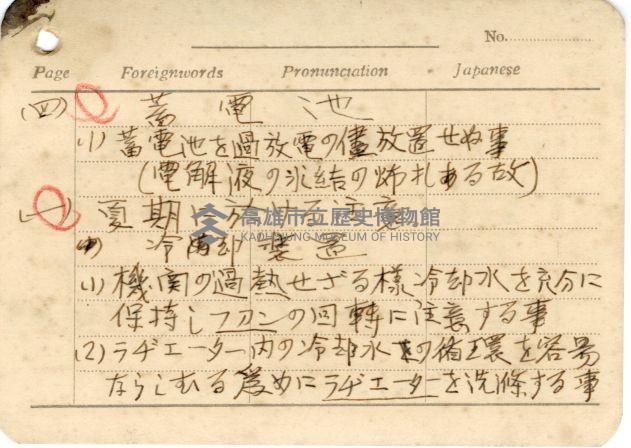 No.
Page Foreignwords Pronunciation Japanese
(四) 蓄電池
(1) 蓄電池を過放電の儘放置せぬ事
(電解液の氷結の怖れある故)
(一) 夏期に於ける注意
高雄市立歷史博物館
KAOHSIUNG MUSEUM OF HISTORY
冷却装置
(1) 機関の過熱せざる様冷却水を充分に
保持しフアンの回轉に注意する事
(2) ラヂエーター内の冷却水の循環を容易
ならしむる為めにラヂエーターを洗滌する事